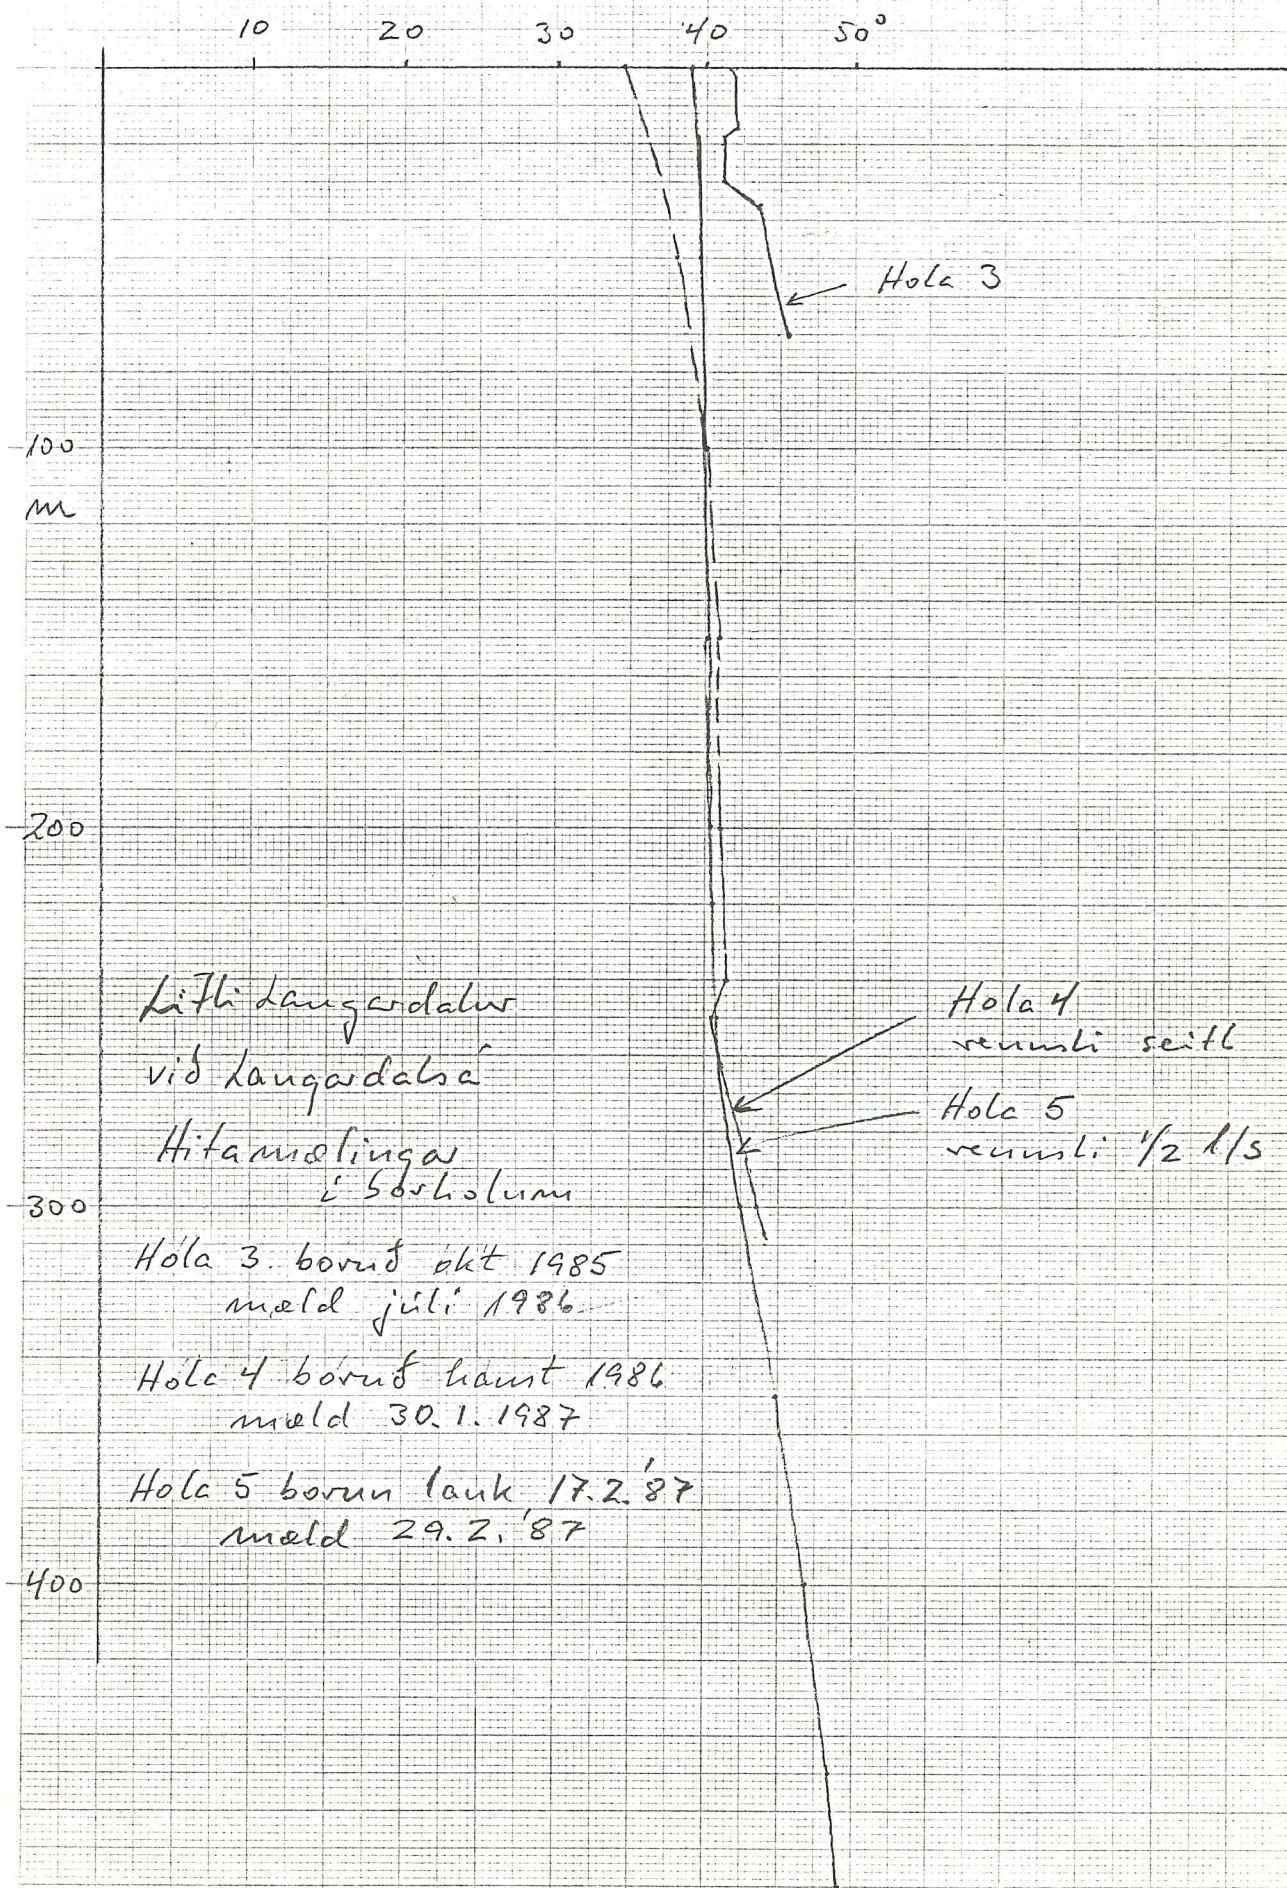 10 20 30 40 50°
Hola 3
100
m
200
Litli Laugardalur
við Laugardalsá
Hitamælingar
í borholum
Hola 4
rennsli seitl
Hola 5
rennsli 1/2 l/s
300
Hóla 3. boruð okt 1985
mæld júlí 1986
Hóla 4 boruð haust 1986
mæld 30.1.1987
Hola 5 borun lauk 17.2.'87
mæld 29.2.'87
400